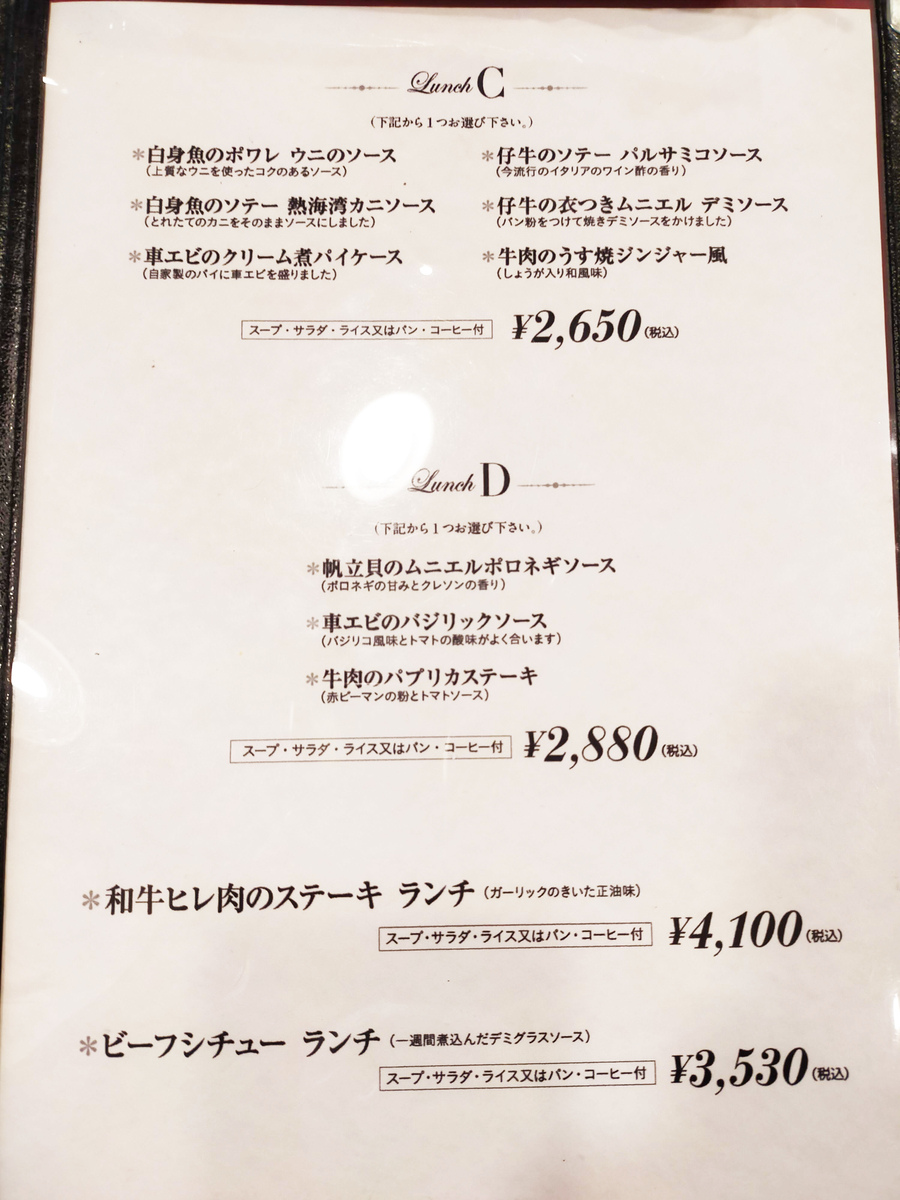 Lunch C
(下記から1つお選び下さい。)
*白身魚のポワレ ウニのソース
(上質なウニを使ったコクのあるソース)
*白身魚のソテー 熱海湾カニソース
(とれたてのカニをそのままソースにしました)
*車エビのクリーム煮パイケース
(自家製のパイに車エビを盛りました)
*仔牛のソテー パルサミコソース
(今流行のイタリアのワイン酢の香り)
*仔牛の衣つきムニエル デミソース
(パン粉をつけて焼きデミソースをかけました)
*牛肉のうす焼ジンジャー風
(しょうが入り和風味)
スープ・サラダ・ライス又はパン・コーヒー付 ¥2,650(税込)
Lunch D
(下記から1つお選び下さい。)
*帆立貝のムニエルポロネギソース
(ポロネギの甘みとクレソンの香り)
*車エビのバジリックソース
(バジリコ風味とトマトの酸味がよく合います)
*牛肉のパプリカステーキ
(赤ピーマンの粉とトマトソース)
スープ・サラダ・ライス又はパン・コーヒー付 ¥2,880(税込)
*和牛ヒレ肉のステーキ ランチ(ガーリックのきいた正油味)
スープ・サラダ・ライス又はパン・コーヒー付 ¥4,100(税込)
*ビーフシチュー ランチ(一週間煮込んだデミグラスソース)
スープ・サラダ・ライス又はパン・コーヒー付 ¥3,530(税込)